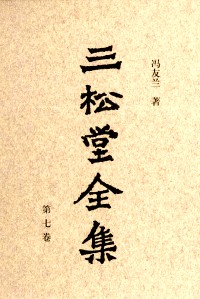 冯友兰 著
三松堂全集
第七卷